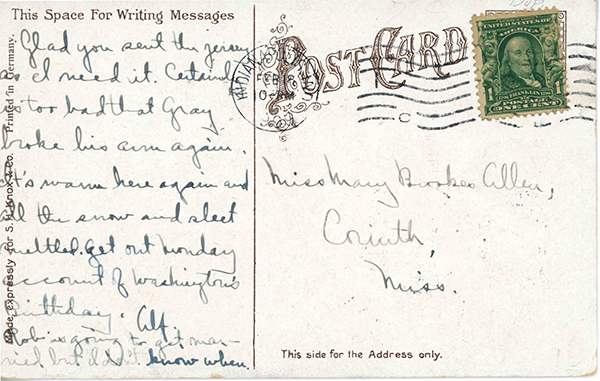 This Space For Writing Messages
Glad you sent the jersey
as I need it. Certainly
is too bad that Gray
broke his arm again.
It's warm here again and
all the snow and sleet
melted. Get out Monday
account of Washington's
Birthday. Alf.
Rob is going to get mar-
ried but don't know when.
Made expressly for S. H. Knox & Co. Printed in Germany.
POST CARD
FEB 18
UNITED STATES OF AMERICA
FRANKLIN
POSTAGE
1
C
Miss Mary Brookes Allen,
Corinth,
Miss.
This side for the Address only.